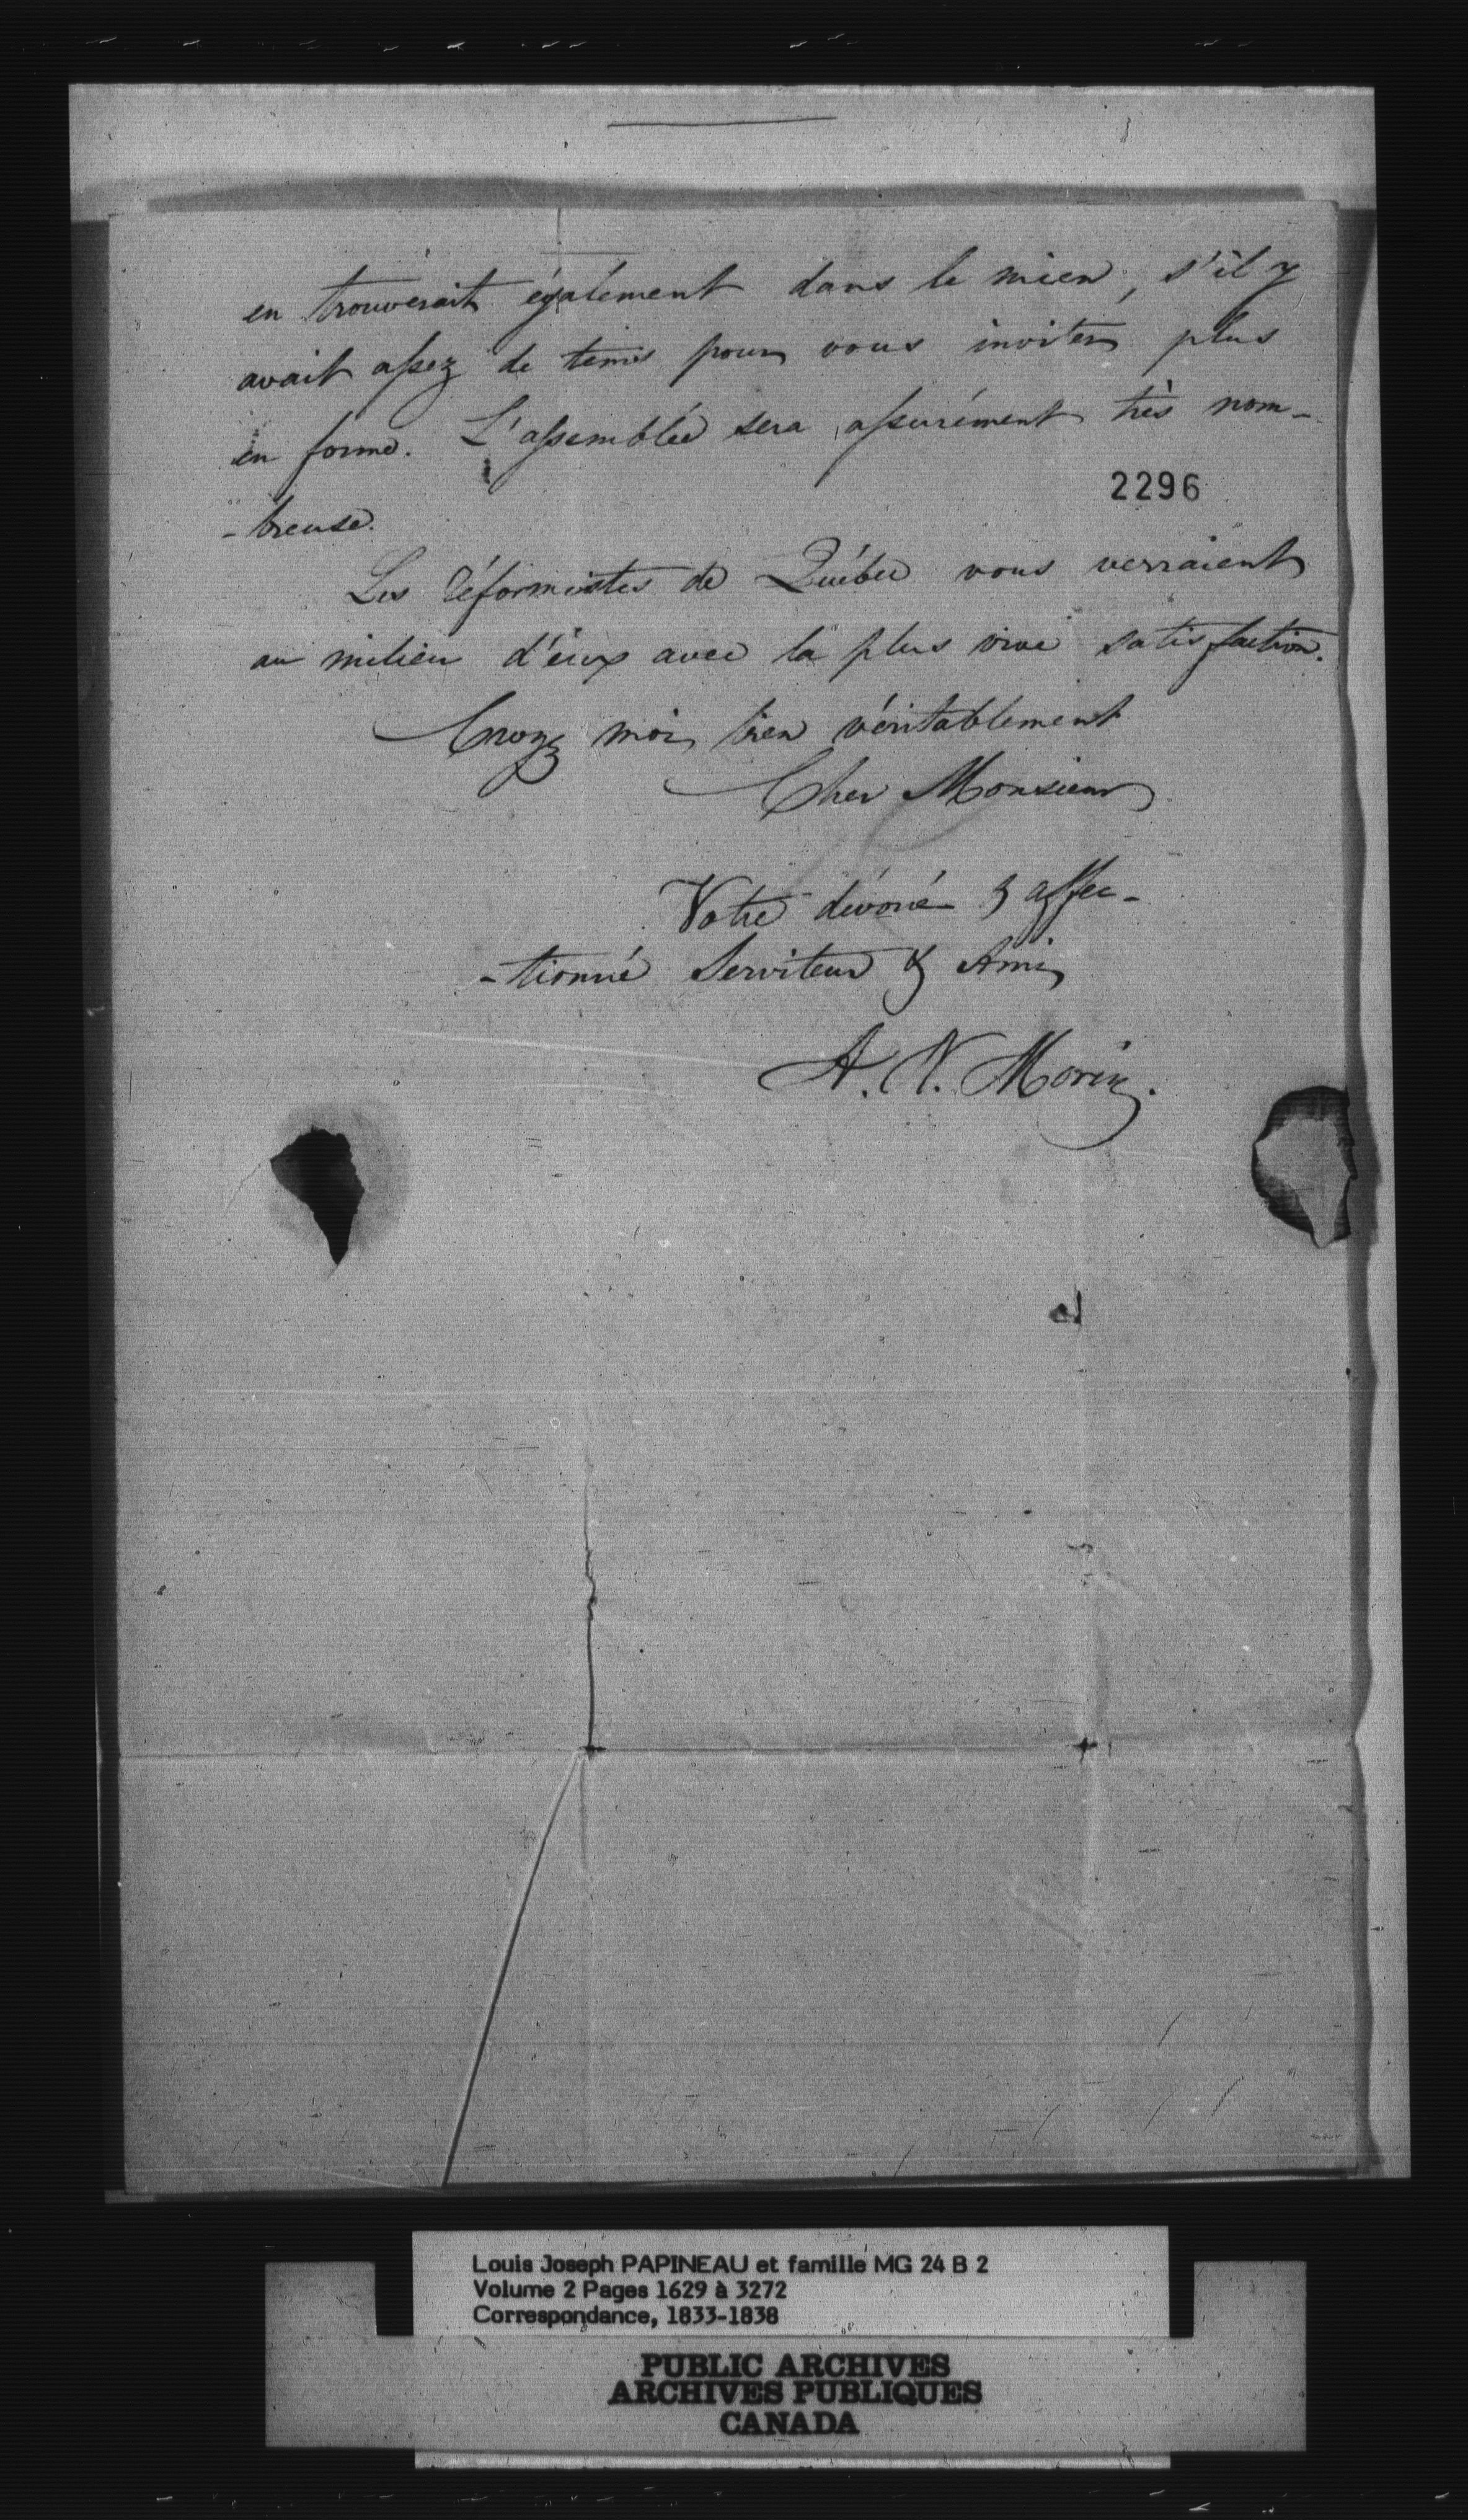 en trouverait également dans le mien, s'il y
avait assez de tems pour vous inviter plus
en forme. L'assemblée sera assurément très nom-
2296
-breuse.
Les réformistes de Québec vous verraient
au milieu d'eux avec la plus vive satisfaction.
Croyez moi bien véritablement
Cher Monsieur
Votre dévoué & affec-
-tionné Serviteur & Ami
A. N. Morin.
Louis Joseph PAPINEAU et famille MG 24 B 2
Volume 2 Pages 1629 à 3272
Correspondance, 1833-1838
PUBLIC ARCHIVES
ARCHIVES PUBLIQUES
CANADA